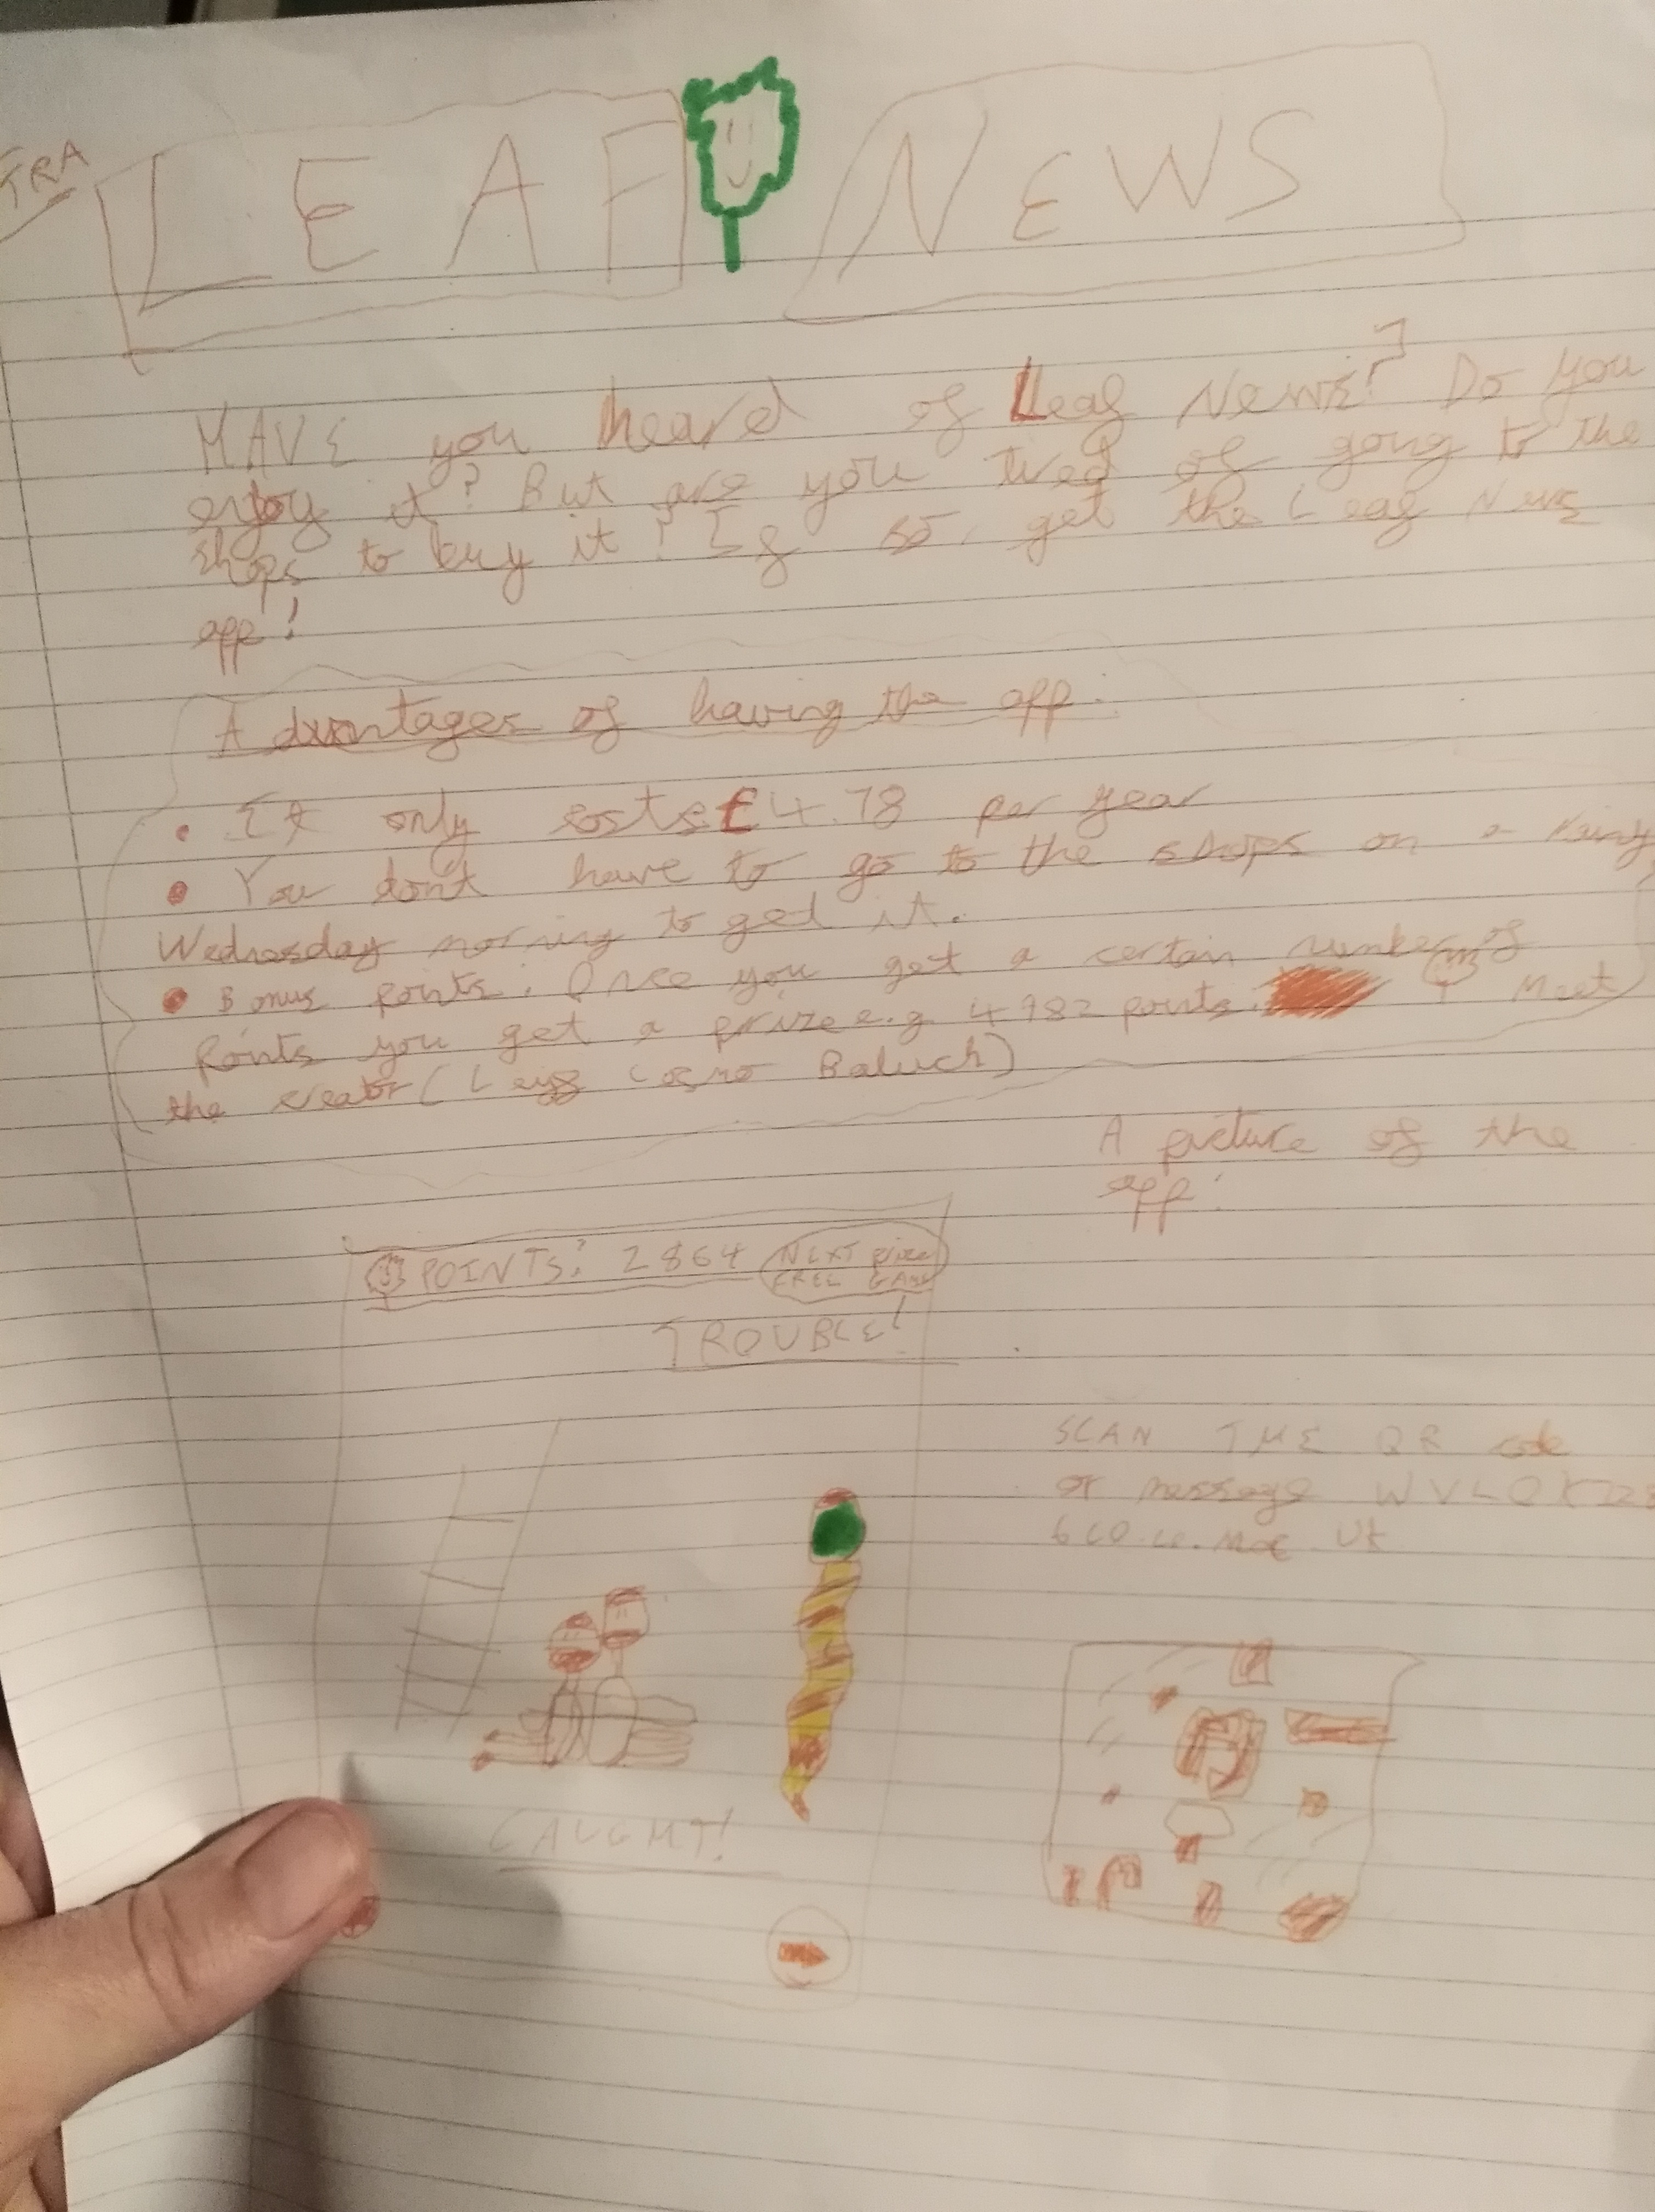 TRA
LEAF NEWS
HAVE you heard of Leaf News? Do you
enjoy it? But are you tired of going to the
shops to buy it? If so, get the Leaf News
app!
Advantages of having the app:
• It only costs £4.78 per year
• You don't have to go to the shops on a rainy
Wednesday morning to get it.
• Bonus points. Once you get a certain number of
Points you get a prize e.g. 4982 points. Meet
the creator (Cosmo Baluch)
A picture of the
app:
POINTS: 2864
NEXT prize
FREE GAME
TROUBLE!
SCAN THE QR code
or message
CAUGHT!